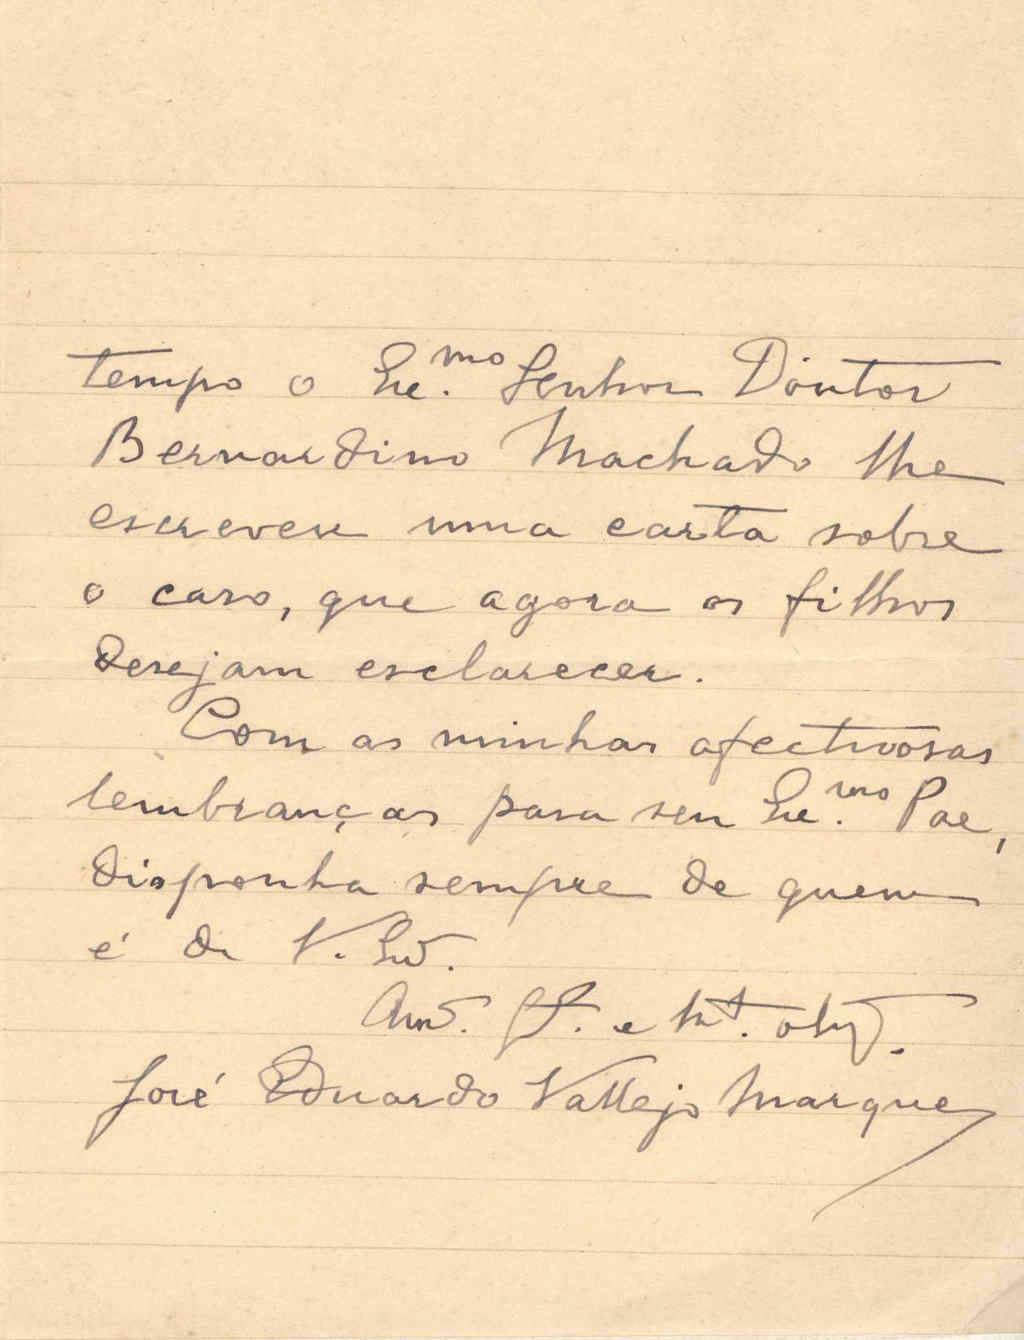 tempo o Exc.mo Senhor Doutor
Bernardino Machado lhe
escreveu uma carta sobre
o caso, que agora os filhos
desejam esclarecer.
Com as minhas afectuosas
lembranças para seu Exc.mo Pae,
disponha sempre de quem
é de V. Exª.
Amº. e mtº. obgº.
José Eduardo Vallejo Marques